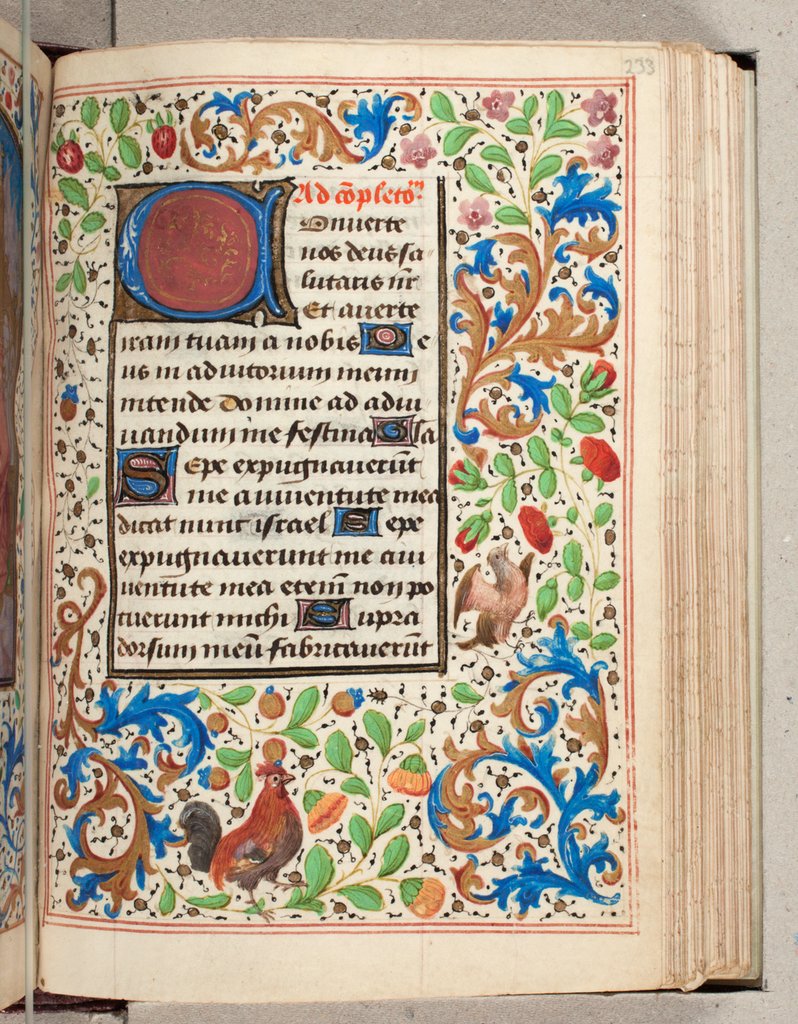 233
Ad cõpleto᷑ꝫ
Conuerte
nos deus sa
lutaris nr̄
Et auerte
iram tuam a nobis De
us in adiutorium meum
intende Domine ad adiu
uandum me festina Gla
Sepe expugnauerūt
me a iuuentute mea
dicat nunc israel Sepe
expugnauerunt me a iu
uentute mea eteī non po
tuerunt michi Supra
dorsum meū fabricauerūt